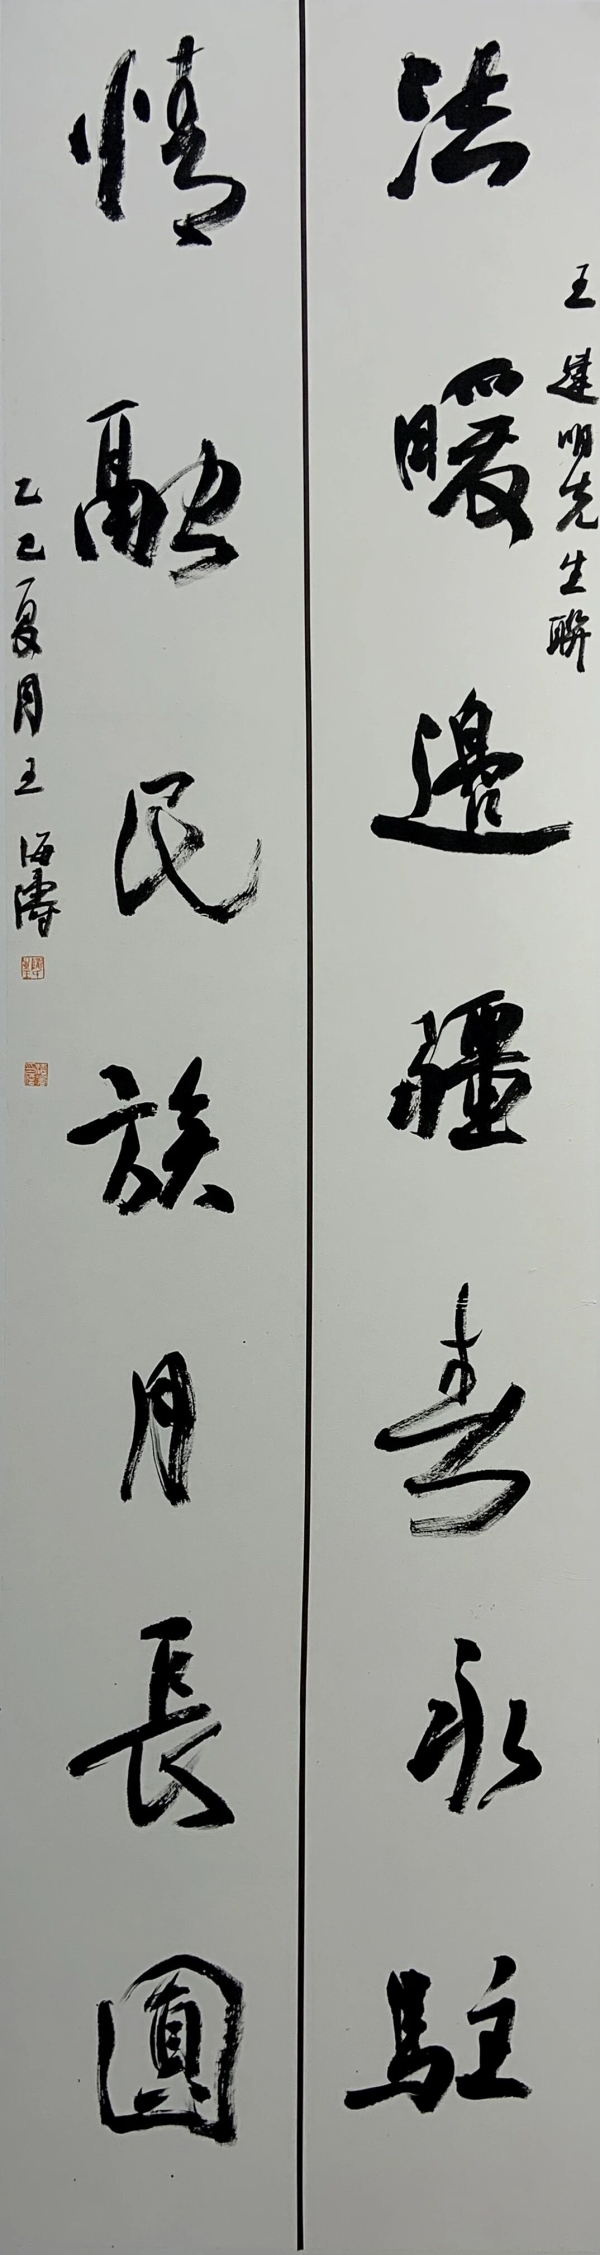 法暖邊疆春永駐
王建明先生聯
情融民族月長圓
乙巳夏月王海濤